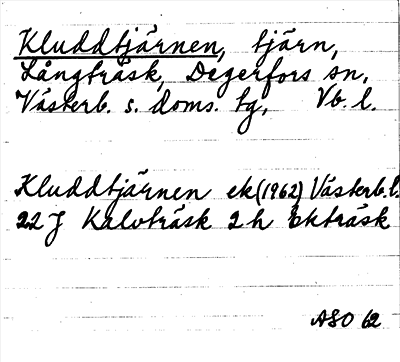 Kluddtjärnen, tjärn,
Långträsk, Degerfors sn,
Västerb. s. doms. tg, Vb. l.
Kluddtjärnen ek (1962) Västerb. l.
22 J Kalvträsk 2 h Ekträsk
ASO 62